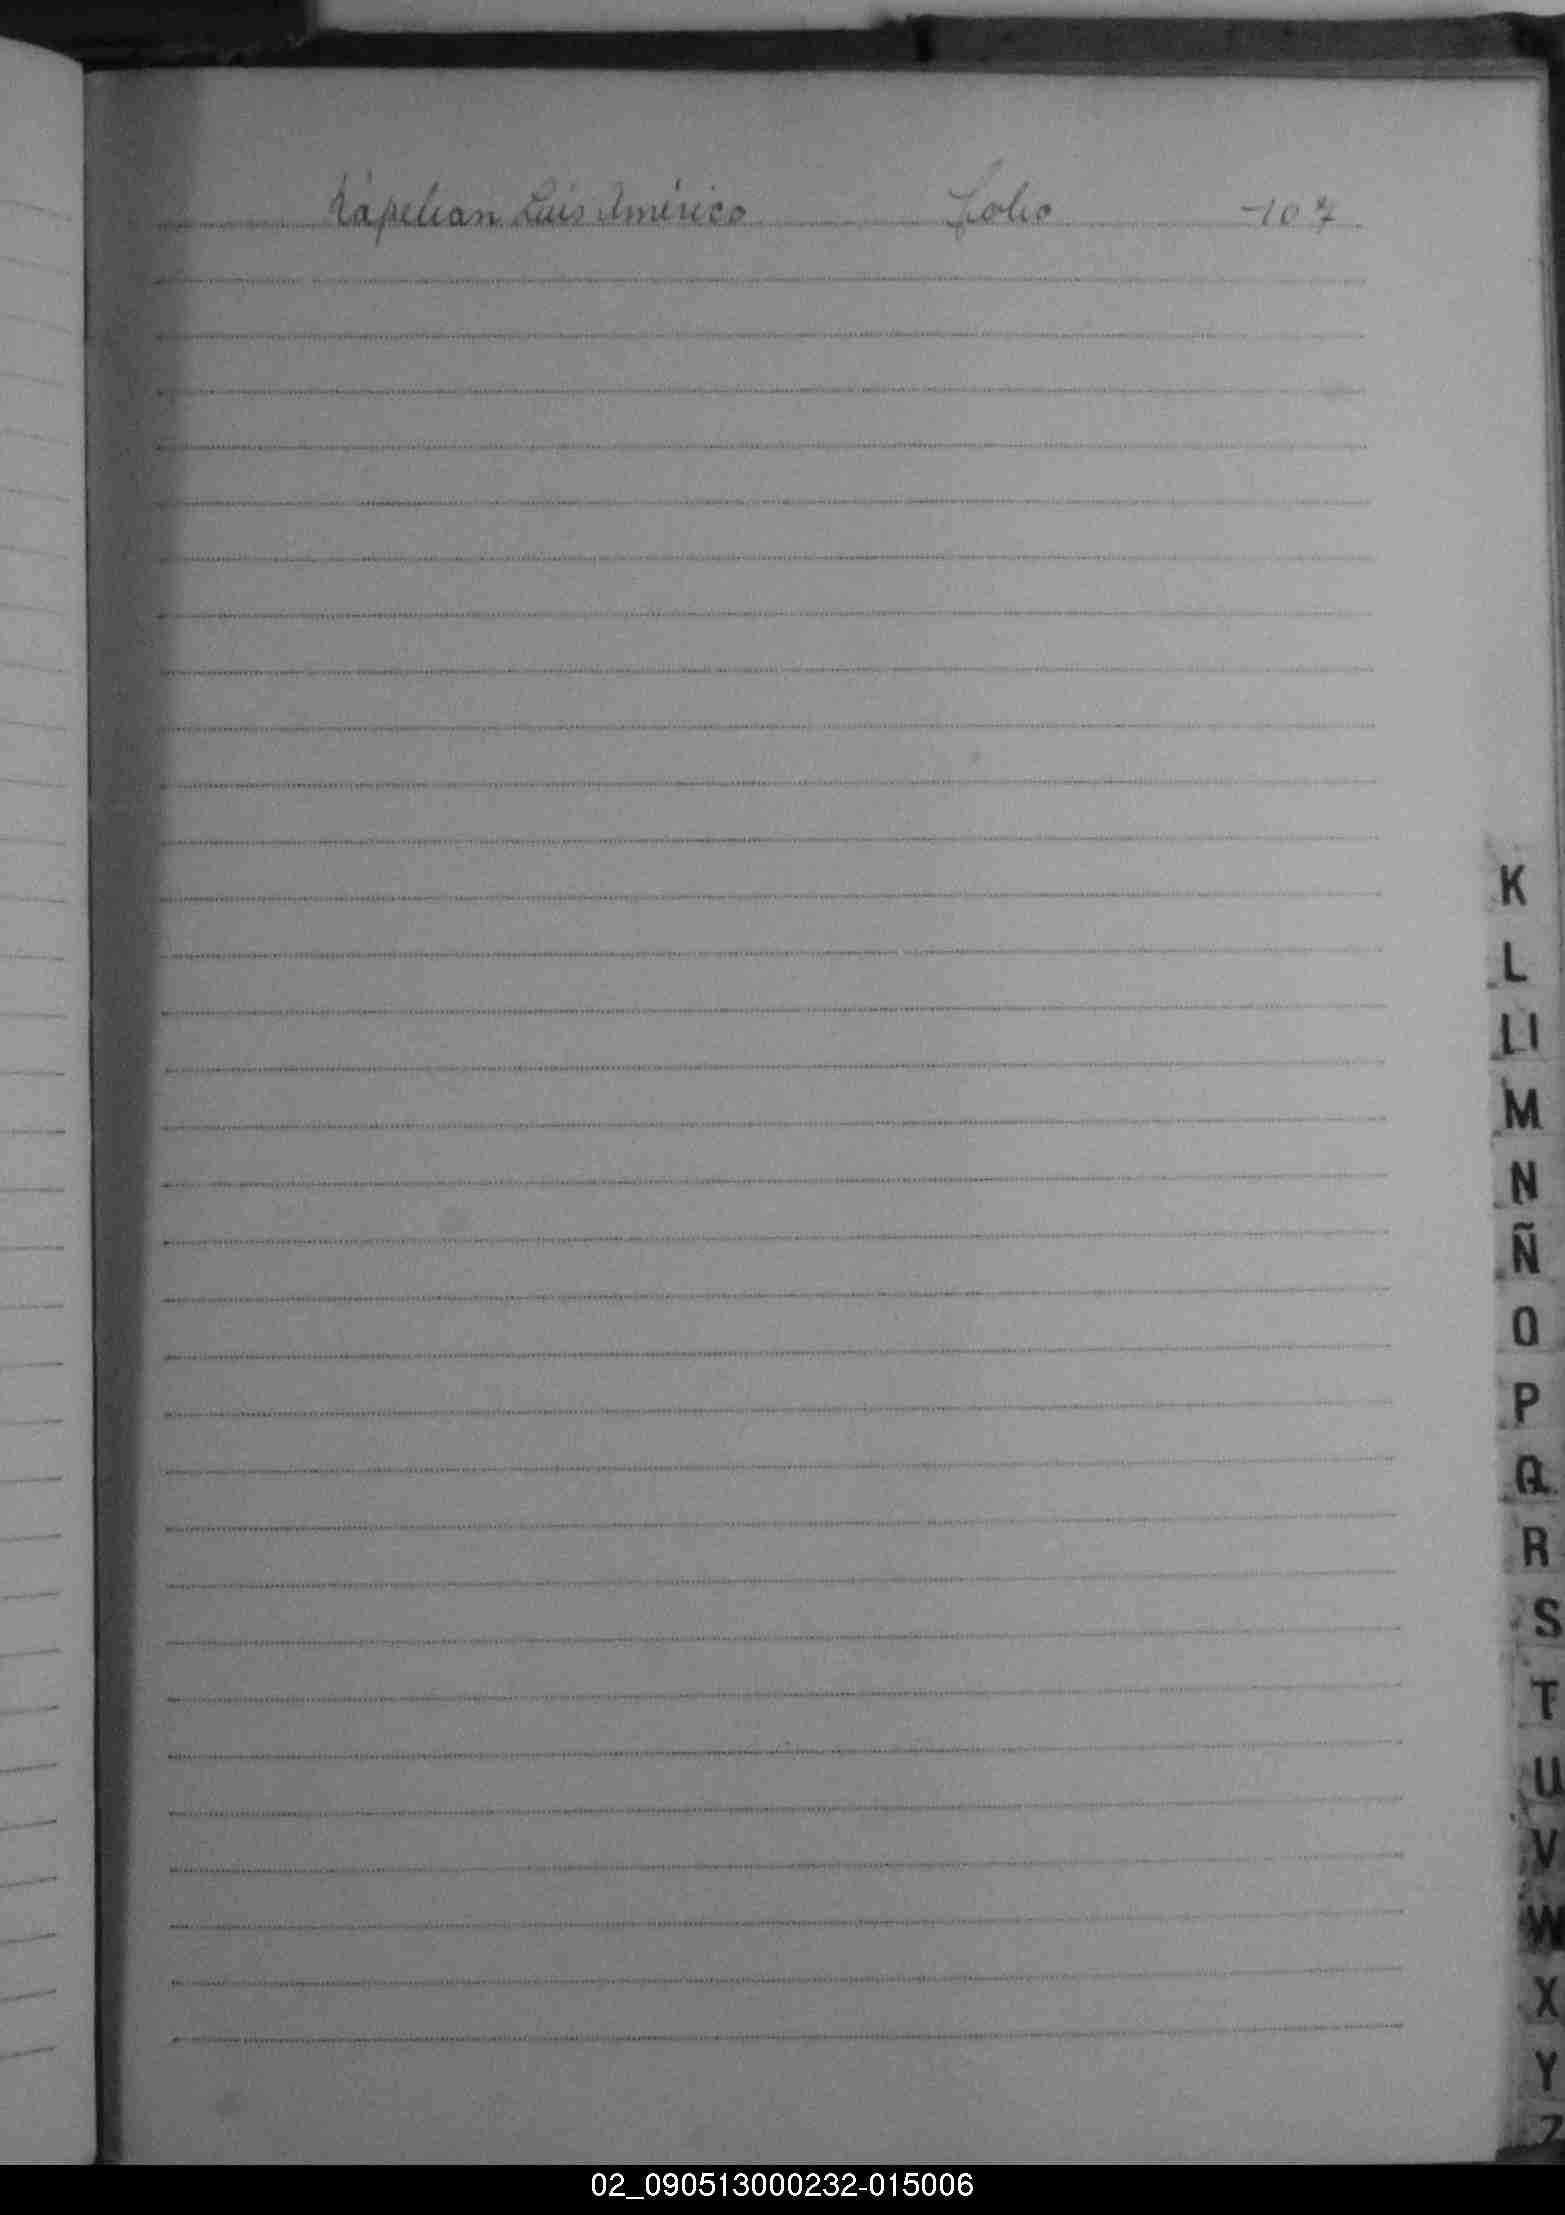 Kápelian Luis Américo folio -107
K
L
Ll
M
N
Ñ
O
P
Q
R
S
T
U
V
W
X
Y
Z
02_090513000232-015006